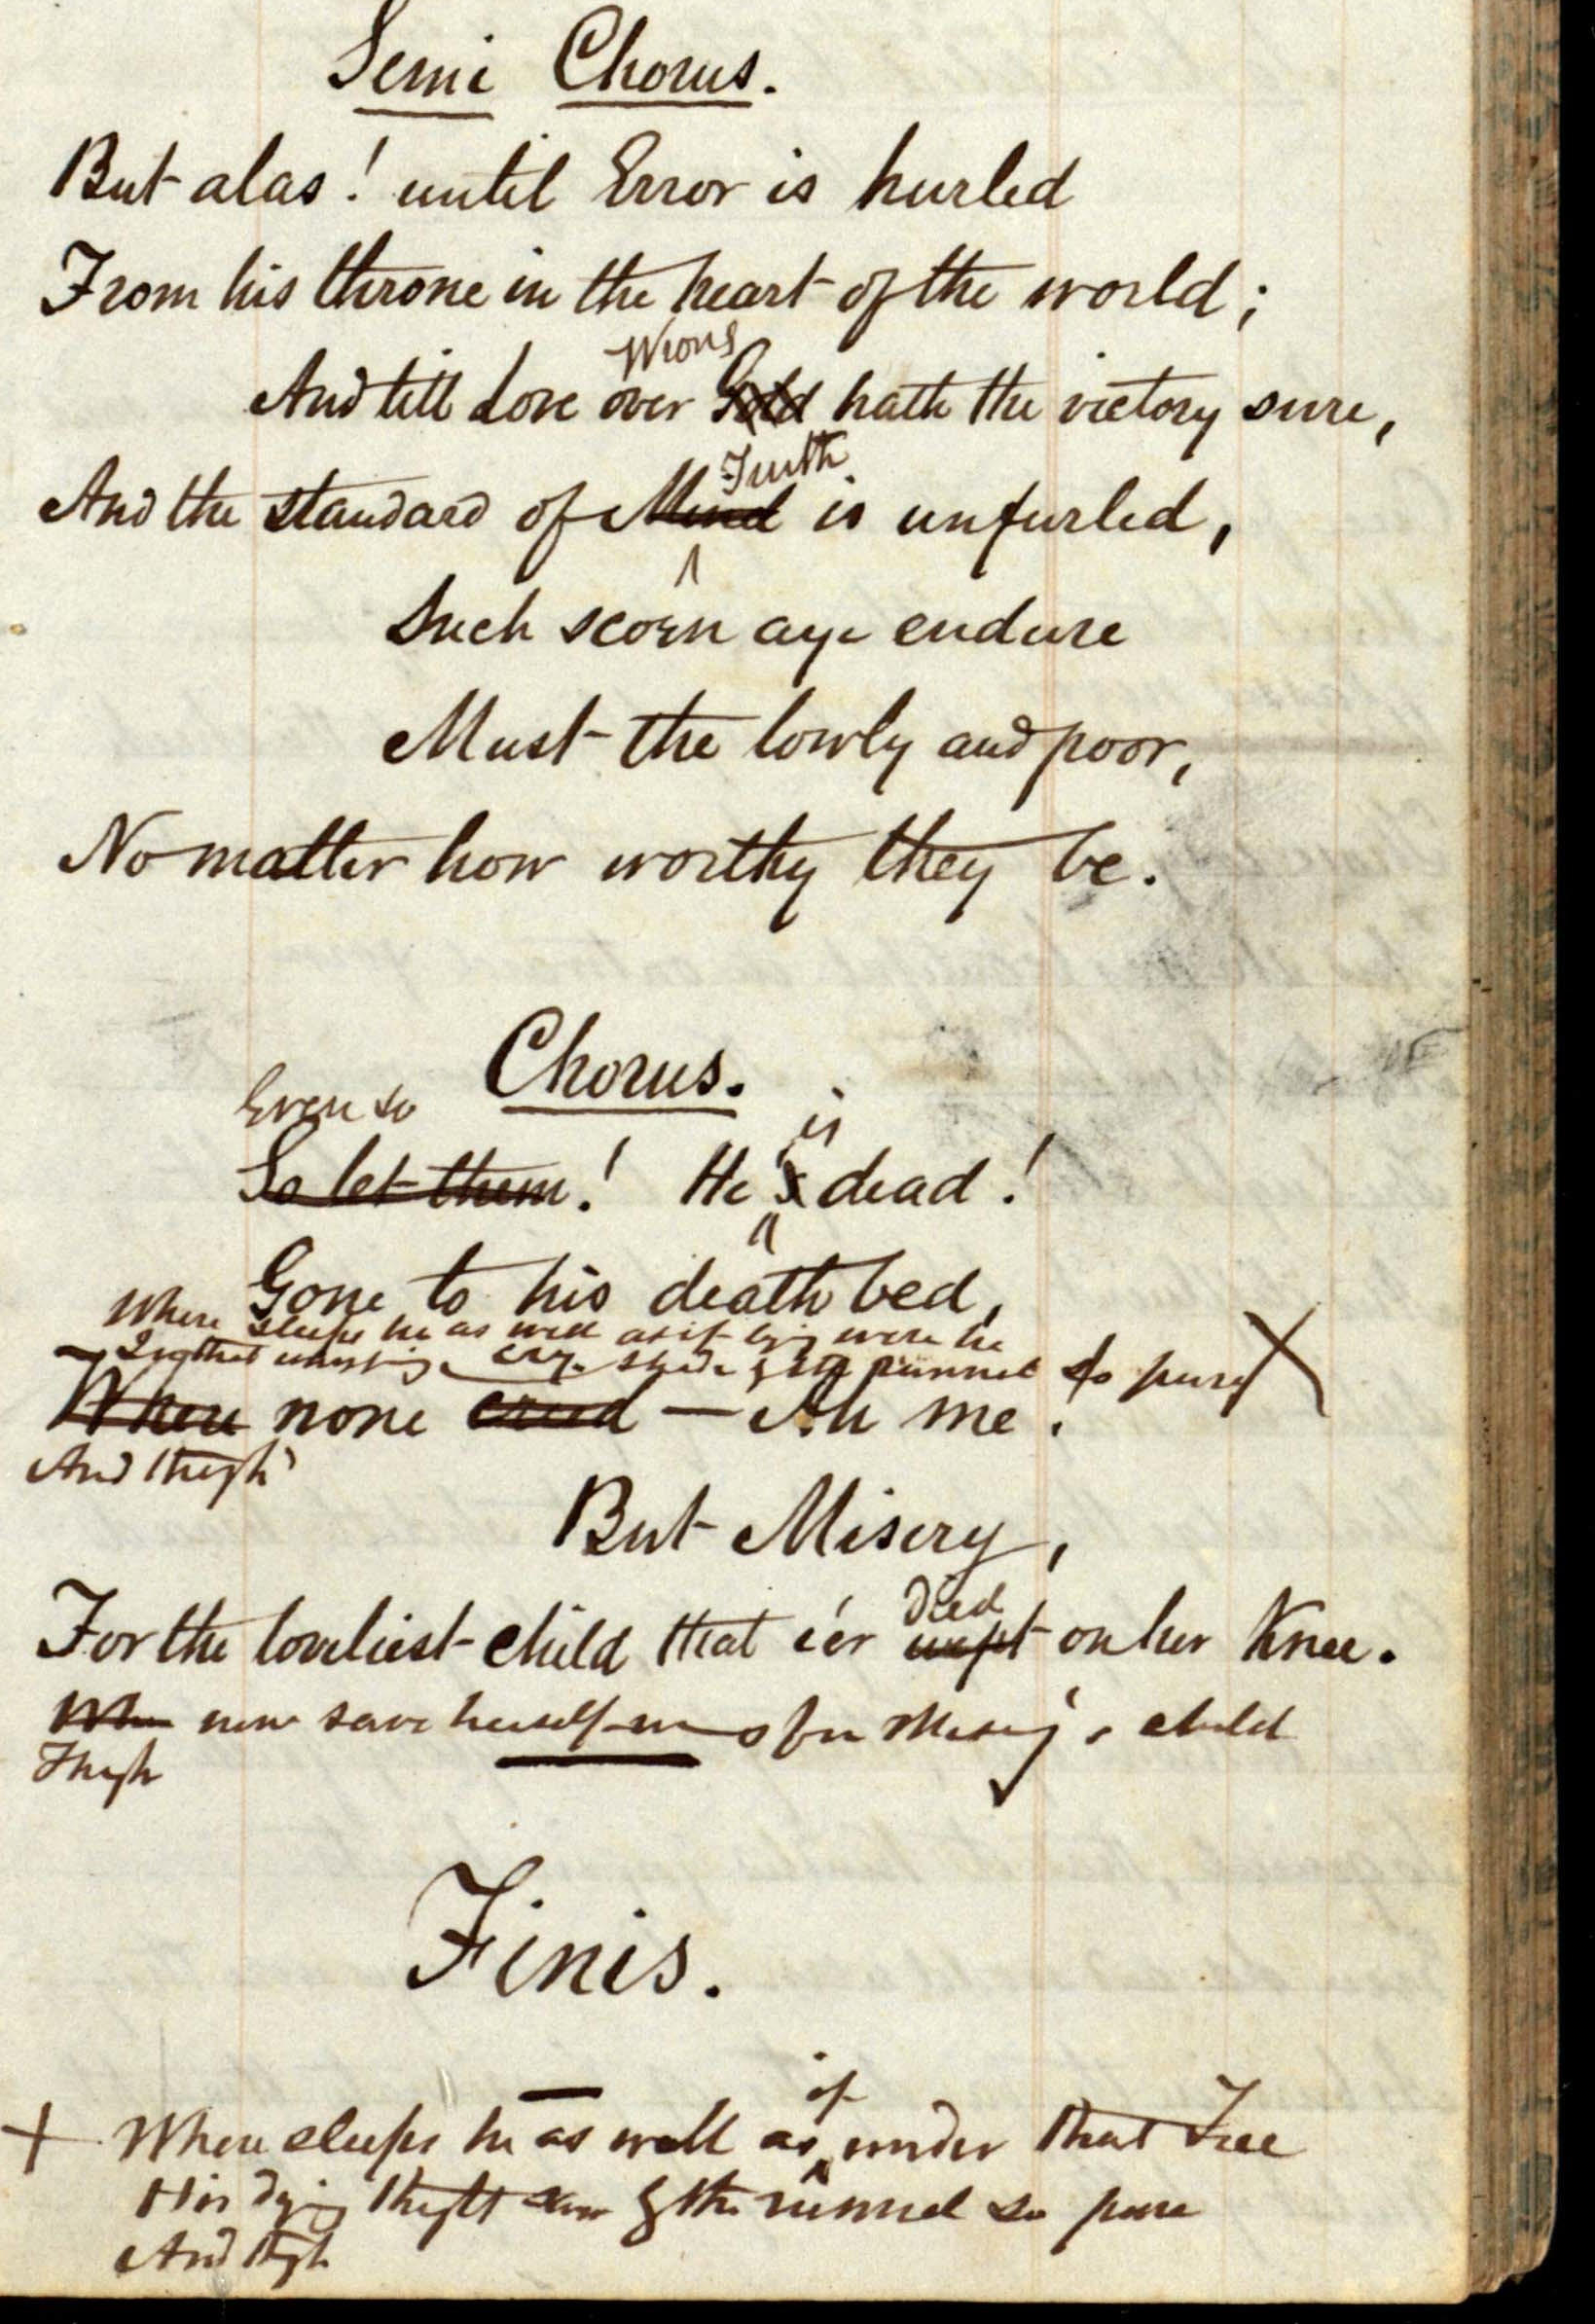 Semi Chorus.
But alas! until Error is hurled
From his throne in the heart of the world;
Wrong
And till Love over Gold hath the victory sure,
Truth
And the standard of Mind is unfurled,
Such scorn aye endure
Must the lowly and poor,
No matter how worthy they be.
Chorus.
Even so is
So let them! He's dead!
Gone to his death bed,
Where sleeps he as well as if were he
that runnel so pure
Where none cried — Ah me!
And though
But Misery,
Died
For the loveliest child that e'er wept on her Knee.
save herself for Misery's child
Though
Finis.
if
Where sleeps he as well as under that Tree
His dying saw the runnel so pure
And though